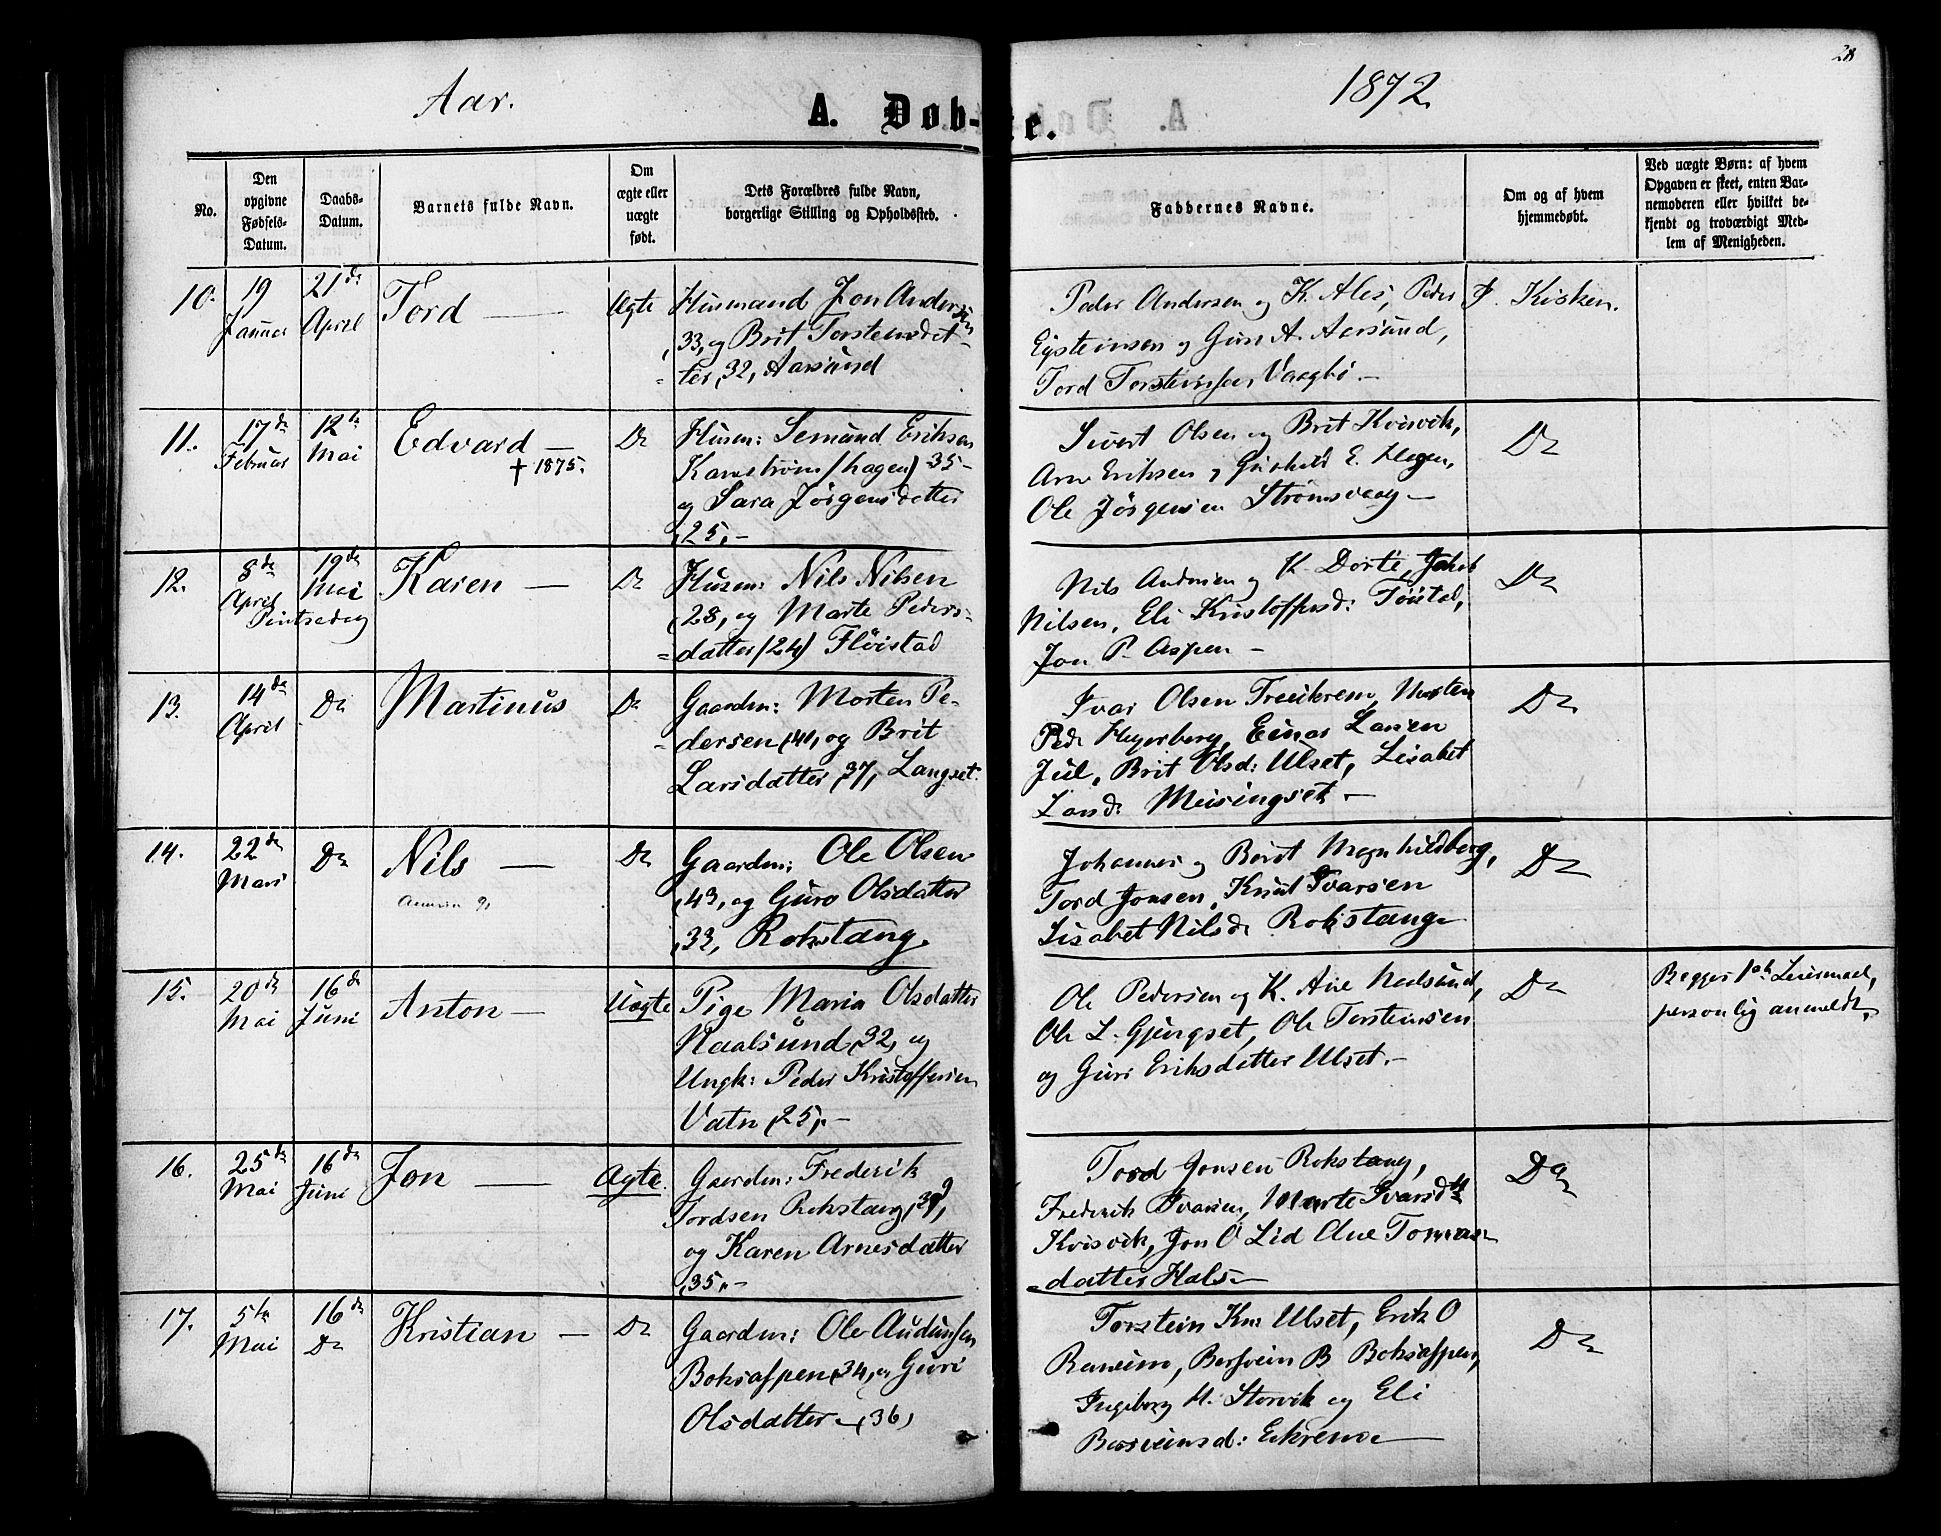 28
Aar. 1872.
A. Døb- te.
No.
Den opgivne Fødsels-Datum.
Daabs-Datum.
Barnets fulde Navn.
Om ægte eller uægte født.
Dets Forældres fulde Navn, borgerlige Stilling og Opholdssted.
Faddernes Navne.
Om og af hvem hjemmedøbt.
Ved uægte Børn: af hvem Opgaven er skeet, enten Barnemoderen eller hvilket bekjendt og troværdigt Medlem af Menigheden.
10.
19 Januar
21de April
Tord —
Ægte
Husmand Jon Andersen
33, og Brit Torstensdat-
-ter, 32, Aarsund
Peder Andersen og K. Ales, Peder
Eysteinsen og Guri A. Aarsund,
Tord Torsteinsen Vaagbø.—
I Kirken.
11.
17de Februar
12te Mai
Edvard —
† 1875.
Do
Husm: Semund Eriksen
Kanestrøm (hagen) 35-
og Sara Jørgensdatter
25,-
Sivert Olsen og Brit Kvisvik,
Arn Eriksen og E. Hagen,
Ole Jørgensen Strømsvaag —
Do
12.
8de April
19de Mai
Pintsedag
Karen —
Do
Husm: Nils Nilsen
28, og Marte Peders-
-datter (24) Fløistad
Nils Andersen og K. Dorte, Jakob
Nilsen, Eli Kristoffersd:
Jon P. Aspen —
Do
13.
14de April
Do
Martinus
Do
Gaardm: Morten Pe-
-dersen, 41, og Brit
Larsdatter, 37, Langset.
Ivar Olsen Freikrem, Morten
Peds Hegerberg, Einar Larsen
Jul, Brit Olsd: Ulset, Lisabet
Larsd: Meisingset —
Do
14.
22de Mars
Do
Nils —
Do
Gaardm: Ole Olsen
43, og Guro Olsdatter
33, Rokstang.
Johannes og Berit Magnhildberg,
Tord Jonsen, Knut Ivarsen
Lisabet Nilsd: Rokstang
Do
15.
20de Mai
16de Juni
Anton —
Uægte
Pige Maria Olsdatter
Naalsund, 32, og
Ungk: Peder Kristoffersen
Vatn, 25,—
Ole Pedersen og K. Ane Naalsund,
Ole L. Gjengset, Ole Torsteinsen
og Guri Eriksdatter Ulset.—
Do
Begges 1ste Leiermaal,
personlig anmeldt.
16.
25de Mai
16de Juni
Jon —
Ægte.
Gaardm: Frederik
Tordsen Rokstang, 39,
og Karen Arnesdatter
35.-
Tord Jonsen Rokstang,
Frederik Ivarsen, Marte Ivarsdtr
Kvisvik, Jon O Lid Ane Tomas-
-datter Hals —
Do
17.
5te Mai
16de Do
Kristian —
Do
Gaardm: Ole Audunsen
Boksaspen, 34, og Guri
Olsdatter —, 36,
Torstein Kn: Ulset, Erik O
Raneim, Bersvein B Boksaspen,
Ingeborg H. Storvik og Eli
Bersveinsd: Ekrem —
Do